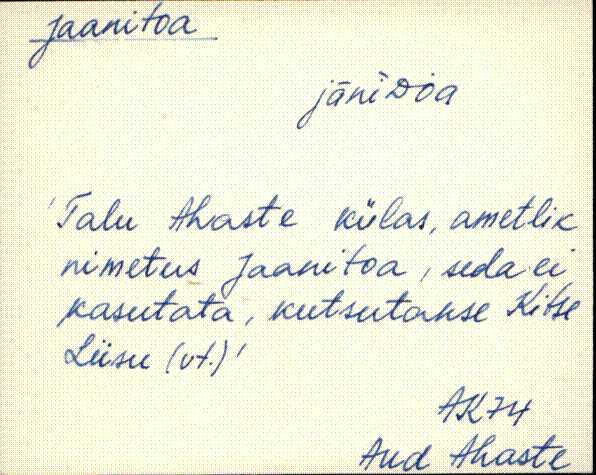 Jaanitoa
jāniDoa
'Talu Ahaste külas, ametlik
nimetus Jaanitoa, seda ei
kasutata, kutsutakse Kitse
Liisu (vt.)'
AK74
Aud Ahaste